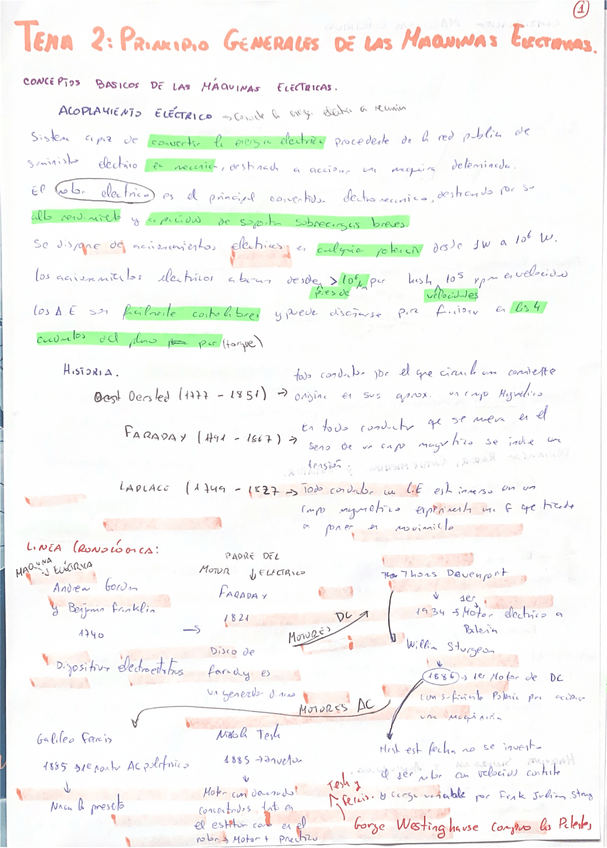 1
TEMA 2: PRINCIPIO GENERALES DE LAS MAQUINAS ELECTRICAS.
CONCEPTOS BASICOS DE LAS MÁQUINAS ELECTRICAS.
ACOPLAMIENTO ELÉCTRICO → Convierte la energ. electrica a mecanica
Sistema capaz de convertir la energia electrica procedente de la red publica de
suministro electrico en mecanica, destinada a accionar un maquina determinada.
El motor electrico es el principal convertidor electromecanico, destacando por su
alto rendimiento y capacidad de soportar sobrecargas breves.
Se dispone de accionamientos electricos en cualquier potencia desde 1W a 10⁶ W.
los accionamientos electricos abarcan desde > 10⁶ por hasta 10⁵ rpm en velocidad
pares de velocidades
los A E son facilmente controlables y puede diseñarse para funcionar en los 4
cuadrantes del plano par (torque)
HISTORIA.
Oersted (1777 - 1851) → todo conductor por el que circula una corriente
origina en sus aprox. un campo Magnetico
FARADAY (1791 - 1867) → En todo conductor que se mueva en el
seno de un campo magnetico se induce una
tensión.
LAPLACE (1749 - 1827 → Todo conductor en CE esta inmerso en un
campo magnetico experimenta un F que tiende
a poner en movimiento
LINEA CRONOLÓGICA:
MAQUINA ELÉCTRICA
Andrew Gordon
y Benjamin Franklin
1740
Dispositivos electroestaticos
PADRE DEL
MOTOR ELECTRICO
FARADAY
1821
Disco de
Faraday es
un generador
MOTORES DC
Thomas Davenport
1er
1934 → Motor electrico a
Bateria
William Sturgeon
1886 → 1er Motor de DC
con suficiente Potencia para accionar
una maquinaria
MOTORES AC
Hasta est fecha no se invento
el 1er motor con velocidad constante
y carga variable por Frank Julian Sprag
Galileo Ferraris
1885 generador AC polifasico
Nunca lo presento
Nikola Tesla
1885 → inventor
Motor con devanados
concentrados tanto en
el estator como en el
rotor → Motor + Practico
Tesla y
Ferraris.
Gorge Westinghause compro las Patentes